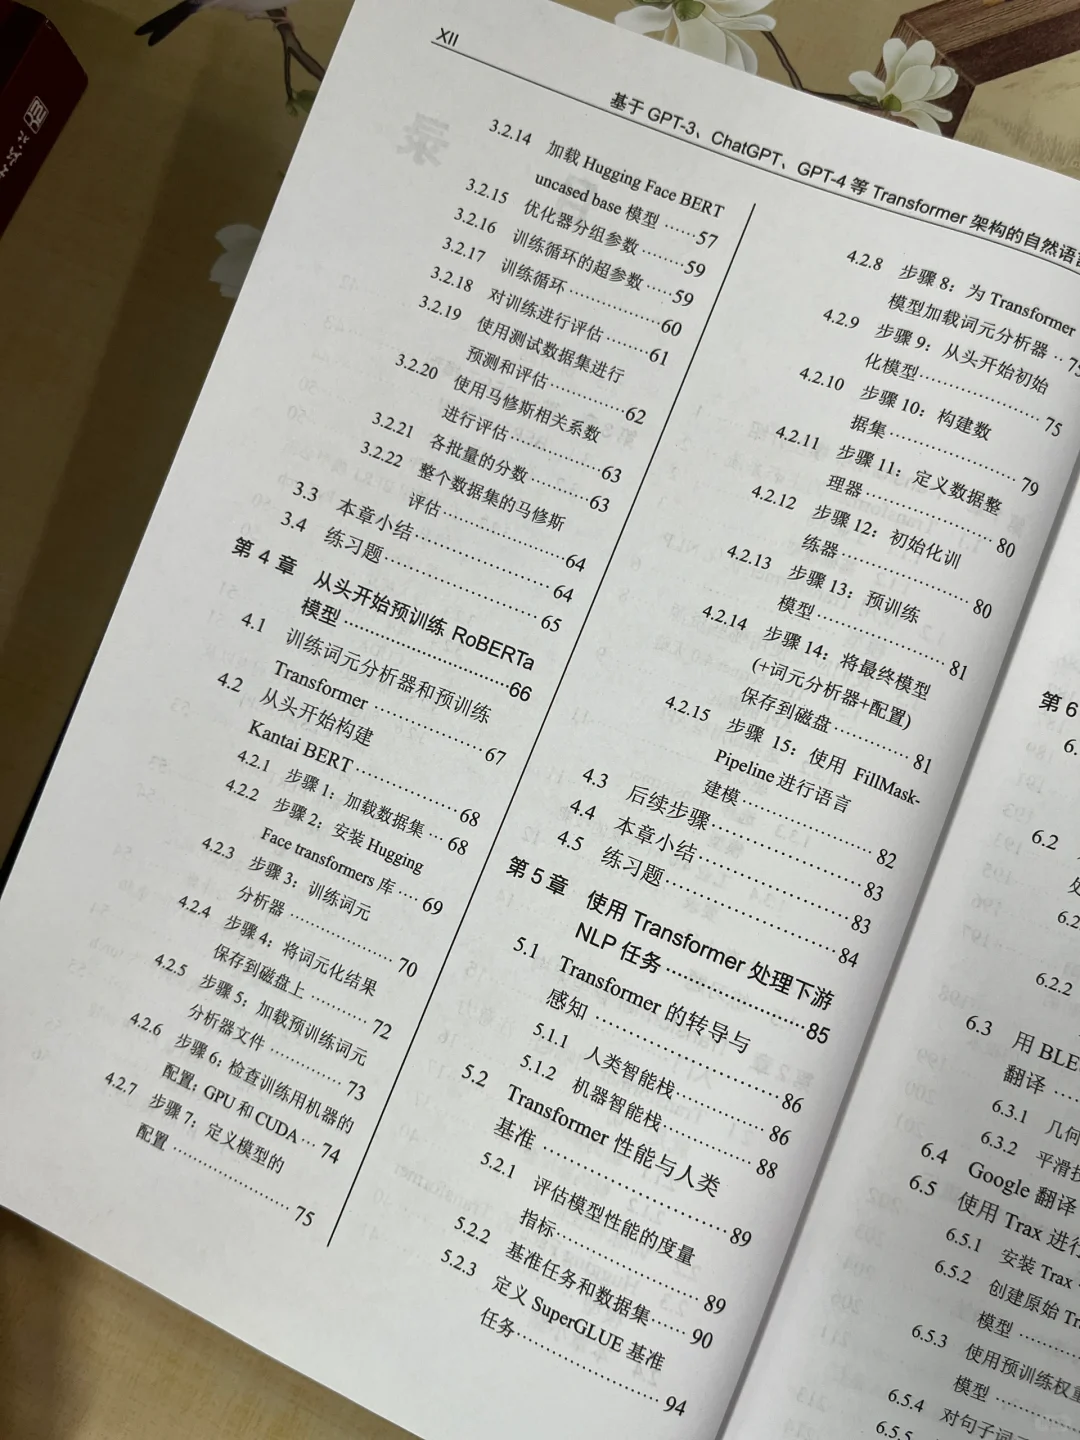 XII
基于 GPT-3、ChatGPT、GPT-4 等 Transformer 架构的自然语言
3.2.14 加载 Hugging Face BERT
uncased base 模型 ……57
3.2.15 优化器分组参数 ………59
3.2.16 训练循环的超参数 ……59
3.2.17 训练循环 ………………60
3.2.18 对训练进行评估 ………61
3.2.19 使用测试数据集进行
预测和评估 ……………62
3.2.20 使用马修斯相关系数
进行评估 ………………63
3.2.21 各批量的分数 …………63
3.2.22 整个数据集的马修斯
评估 ……………………64
3.3 本章小结 ……………………64
3.4 练习题 ………………………65
第 4 章 从头开始预训练 RoBERTa
模型 …………………………66
4.1 训练词元分析器和预训练
Transformer …………………67
4.2 从头开始构建
Kantai BERT …………………68
4.2.1 步骤 1：加载数据集 …68
4.2.2 步骤 2：安装 Hugging
Face transformers 库 …69
4.2.3 步骤 3：训练词元
分析器 …………………70
4.2.4 步骤 4：将词元化结果
保存到磁盘上 …………72
4.2.5 步骤 5：加载预训练词元
分析器文件 ……………73
4.2.6 步骤 6：检查训练用机器的
配置：GPU 和 CUDA …74
4.2.7 步骤 7：定义模型的
配置 ……………………75
4.2.8 步骤 8：为 Transformer
模型加载词元分析器 ‥75
4.2.9 步骤 9：从头开始初始
化模型 …………………75
4.2.10 步骤 10：构建数
据集 ……………………79
4.2.11 步骤 11：定义数据整
理器 ……………………80
4.2.12 步骤 12：初始化训
练器 ……………………80
4.2.13 步骤 13：预训练
模型 ……………………81
4.2.14 步骤 14：将最终模型
(+词元分析器+配置)
保存到磁盘 ……………81
4.2.15 步骤 15：使用 FillMask-
Pipeline 进行语言
建模 ……………………82
4.3 后续步骤 ……………………83
4.4 本章小结 ……………………83
4.5 练习题 ………………………84
第 5 章 使用 Transformer 处理下游
NLP 任务 ……………………85
5.1 Transformer 的转导与
感知 …………………………86
5.1.1 人类智能栈 ……………86
5.1.2 机器智能栈 ……………88
5.2 Transformer 性能与人类
基准 …………………………89
5.2.1 评估模型性能的度量
指标 ……………………89
5.2.2 基准任务和数据集 ……90
5.2.3 定义 SuperGLUE 基准
任务 ……………………94
第 6
6.
6.2
处
6.2
6.2.2
6.3 用 BLE
翻译 ……
6.3.1 几何
6.3.2 平滑技
6.4 Google 翻译
6.5 使用 Trax 进行
6.5.1 安装 Trax
6.5.2 创建原始 Tr
模型 ……
6.5.3 使用预训练权重
模型 ……
6.5.4 对句子词
6.5.5